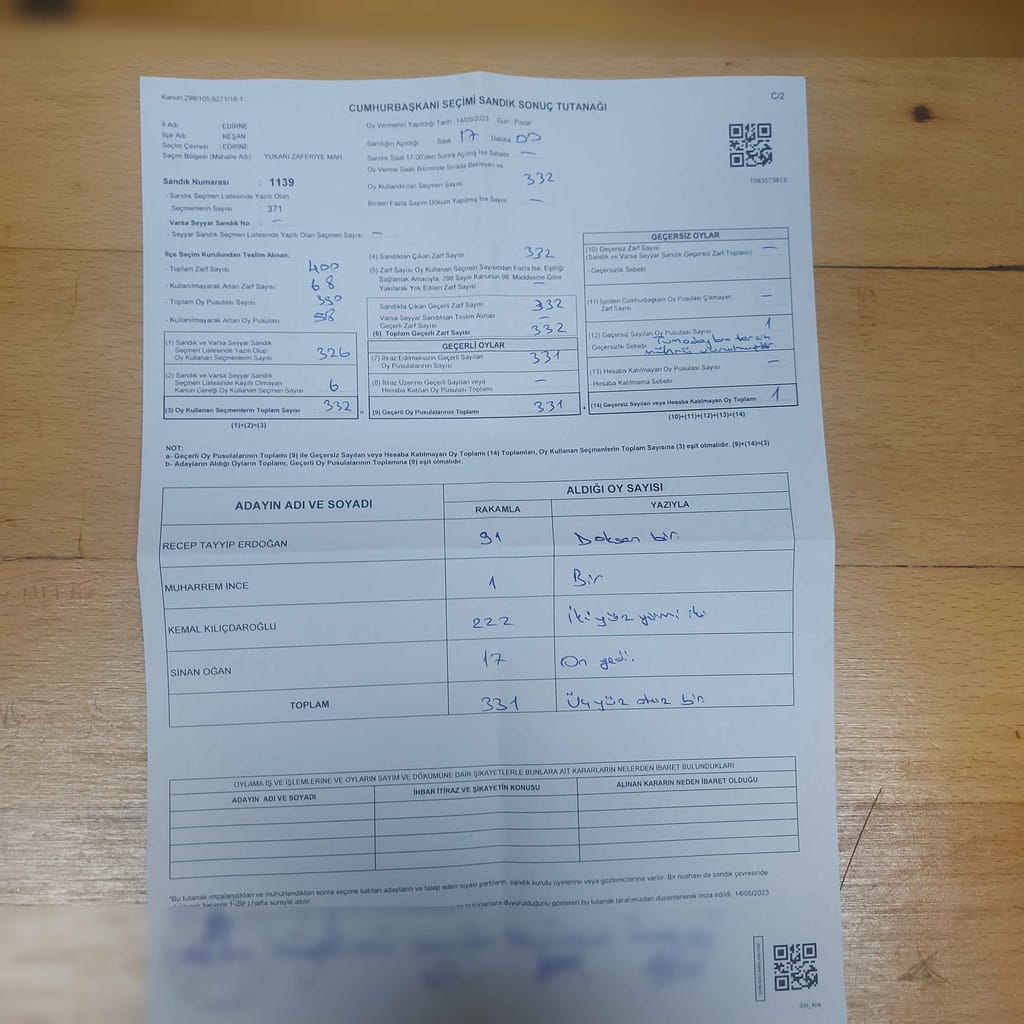 Kanun:298/105;6271/18-1
C/2
CUMHURBAŞKANI SEÇİMİ SANDIK SONUÇ TUTANAĞI
İl Adı EDİRNE
İlçe Adı KEŞAN
Seçim Çevresi : EDİRNE
Seçim Bölgesi (Mahalle Adı) YUKARI ZAFERİYE MAH.
Sandık Numarası : 1139
- Sandık Seçmen Listesinde Yazılı Olan
Seçmenlerin Sayısı : 371
Varsa Seyyar Sandık No : -
- Seyyar Sandık Seçmen Listesinde Yazılı Olan Seçmen Sayısı -
Oy Vermenin Yapıldığı Tarih 14/05/2023 Gün Pazar
Sandığın Açıldığı Saat 17 Dakika 00
Sandık Saat 17.00'den Sonra Açılmış İse Sebebi -
Oy Verme Saati Bitiminde Sırada Bekleyen ve
Oy Kullandırılan Seçmen Sayısı 332
Birden Fazla Sayım Döküm Yapılmış İse Sayısı -
1093573813
İlçe Seçim Kurulundan Teslim Alınan;
- Toplam Zarf Sayısı 400
- Kullanılmayarak Artan Zarf Sayısı 68
- Toplam Oy Pusulası Sayısı 390
- Kullanılmayarak Artan Oy Pusulası 58
(1) Sandık ve Varsa Seyyar Sandık
Seçmen Listesinde Yazılı Olup
Oy Kullanan Seçmenlerin Sayısı 326
(2) Sandık ve Varsa Seyyar Sandık
Seçmen Listesinde Kayıtlı Olmayan
Kanun Gereği Oy Kullanan Seçmen Sayısı 6
(3) Oy Kullanan Seçmenlerin Toplam Sayısı 332
(1)+(2)=(3)
(4) Sandıktan Çıkan Zarf Sayısı 332
(5) Zarf Sayısı Oy Kullanan Seçmen Sayısından Fazla İse, Eşitliği
Sağlamak Amacıyla; 298 Sayılı Kanunun 98. Maddesine Göre
Yakılarak Yok Edilen Zarf Sayısı -
Sandıkta Çıkan Geçerli Zarf Sayısı 332
Varsa Seyyar Sandıktan Teslim Alınan
Geçerli Zarf Sayısı -
(6) Toplam Geçerli Zarf Sayısı 332
GEÇERLİ OYLAR
(7) İtiraz Edilmeksizin Geçerli Sayılan
Oy Pusulasının Sayısı 331
(8) İtiraz Üzerine Geçerli Sayılan veya
Hesaba Katılan Oy Pusulası Toplamı -
(9) Geçerli Oy Pusulalarının Toplamı 331
GEÇERSİZ OYLAR
(10) Geçersiz Zarf Sayısı -
(Sandık ve Varsa Seyyar Sandık Geçersiz Zarf Toplamı)
- Geçersizlik Sebebi
(11) İçinden Cumhurbaşkanı Oy Pusulası Çıkmayan
Zarf Sayısı -
(12) Geçersiz Sayılan Oy Pusulası Sayısı 1
- Geçersizlik Sebebi Tüm adaylara tercih
mührü vurulmuştur.
(13) Hesaba Katılmayan Oy Pusulası Sayısı -
- Hesaba Katılmama Sebebi
(14) Geçersiz Sayılan veya Hesaba Katılmayan Oy Toplamı 1
(10)+(11)+(12)+(13)=(14)
NOT:
a- Geçerli Oy Pusulalarının Toplamı (9) ile Geçersiz Sayılan veya Hesaba Katılmayan Oy Toplamı (14) Toplamları, Oy Kullanan Seçmenlerin Toplam Sayısına (3) eşit olmalıdır. (9)+(14)=(3)
b- Adayların Aldığı Oyların Toplamı, Geçerli Oy Pusulalarının Toplamına (9) eşit olmalıdır.
ADAYIN ADI VE SOYADI
ALDIĞI OY SAYISI
RAKAMLA YAZIYLA
RECEP TAYYİP ERDOĞAN 91 Doksan bir.
MUHARREM İNCE 1 Bir
KEMAL KILIÇDAROĞLU 222 İki yüz yirmi iki
SİNAN OĞAN 17 On yedi.
TOPLAM 331 Üç yüz otuz bir
OYLAMA İŞ VE İŞLEMLERİNE VE OYLARIN SAYIM VE DÖKÜMÜNE DAİR ŞİKAYETLERLE BUNLARA AİT KARARLARIN NELERDEN İBARET BULUNDUKLARI
ADAYIN ADI VE SOYADI İHBAR İTİRAZ VE ŞİKAYETİN KONUSU ALINAN KARARIN NEDEN İBARET OLDUĞU
*Bu tutanak imzalandıktan ve mühürlendikten sonra seçime katılan adayların ve talep eden siyasi partilerin sandık kurulu üyelerine veya gözlemcilerine verilir. Bir nüshası da sandık çevresinde
1 (Bir) hafta süreyle asılır.
duyurulduğunu gösteren bu tutanak tarafımızdan düzenlenerek imza edildi. 14/05/2023